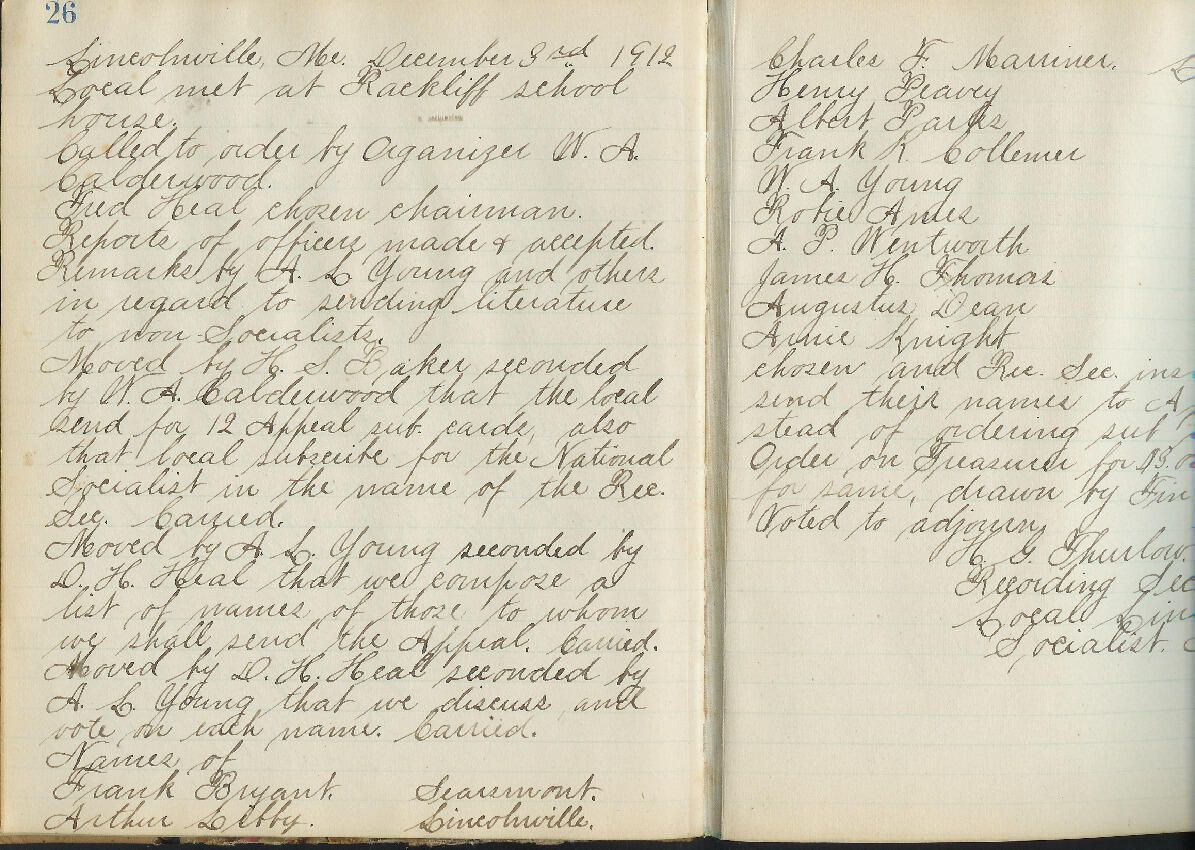 26
Lincolnville, Me. December 3rd 1912
Local met at Rackliff school
house.
Called to order by Organizer W. A.
Calderwood.
Fred Heal chosen chairman.
Reports of officers made & accepted.
Remarks by A. L. Young and others
in regard to sending literature
to non-Socialists.
Moved by H. S. Baker seconded
by W. A. Calderwood that the local
send for 12 Appeal sub. cards, also
that local subscribe for the National
Socialist in the name of the Rec.
Sec. Carried.
Moved by A. L. Young seconded by
D. H. Heal that we compose a
list of names of those to whom
we shall send the Appeal. Carried.
Moved by D. H. Heal seconded by
A. L. Young that we discuss and
vote on each name. Carried.
Names of
Frank Bryant. Searsmont.
Arthur Libby. Lincolnville.
Charles F. Marriner. L
Henry Peavey
Albert Parks
Frank R. Collemer
W. A. Young
Robie Ames
A. P. Wentworth
James H. Thomas
Augustus Dean
Annie Knight
chosen and Rec. Sec. ins
send their names to A
stead of ordering sub
Order on Treasurer for $3.0
for same, drawn by Fin
Voted to adjourn
H. G. Thurlow.
Recording Sec
Local Lin
Socialist.